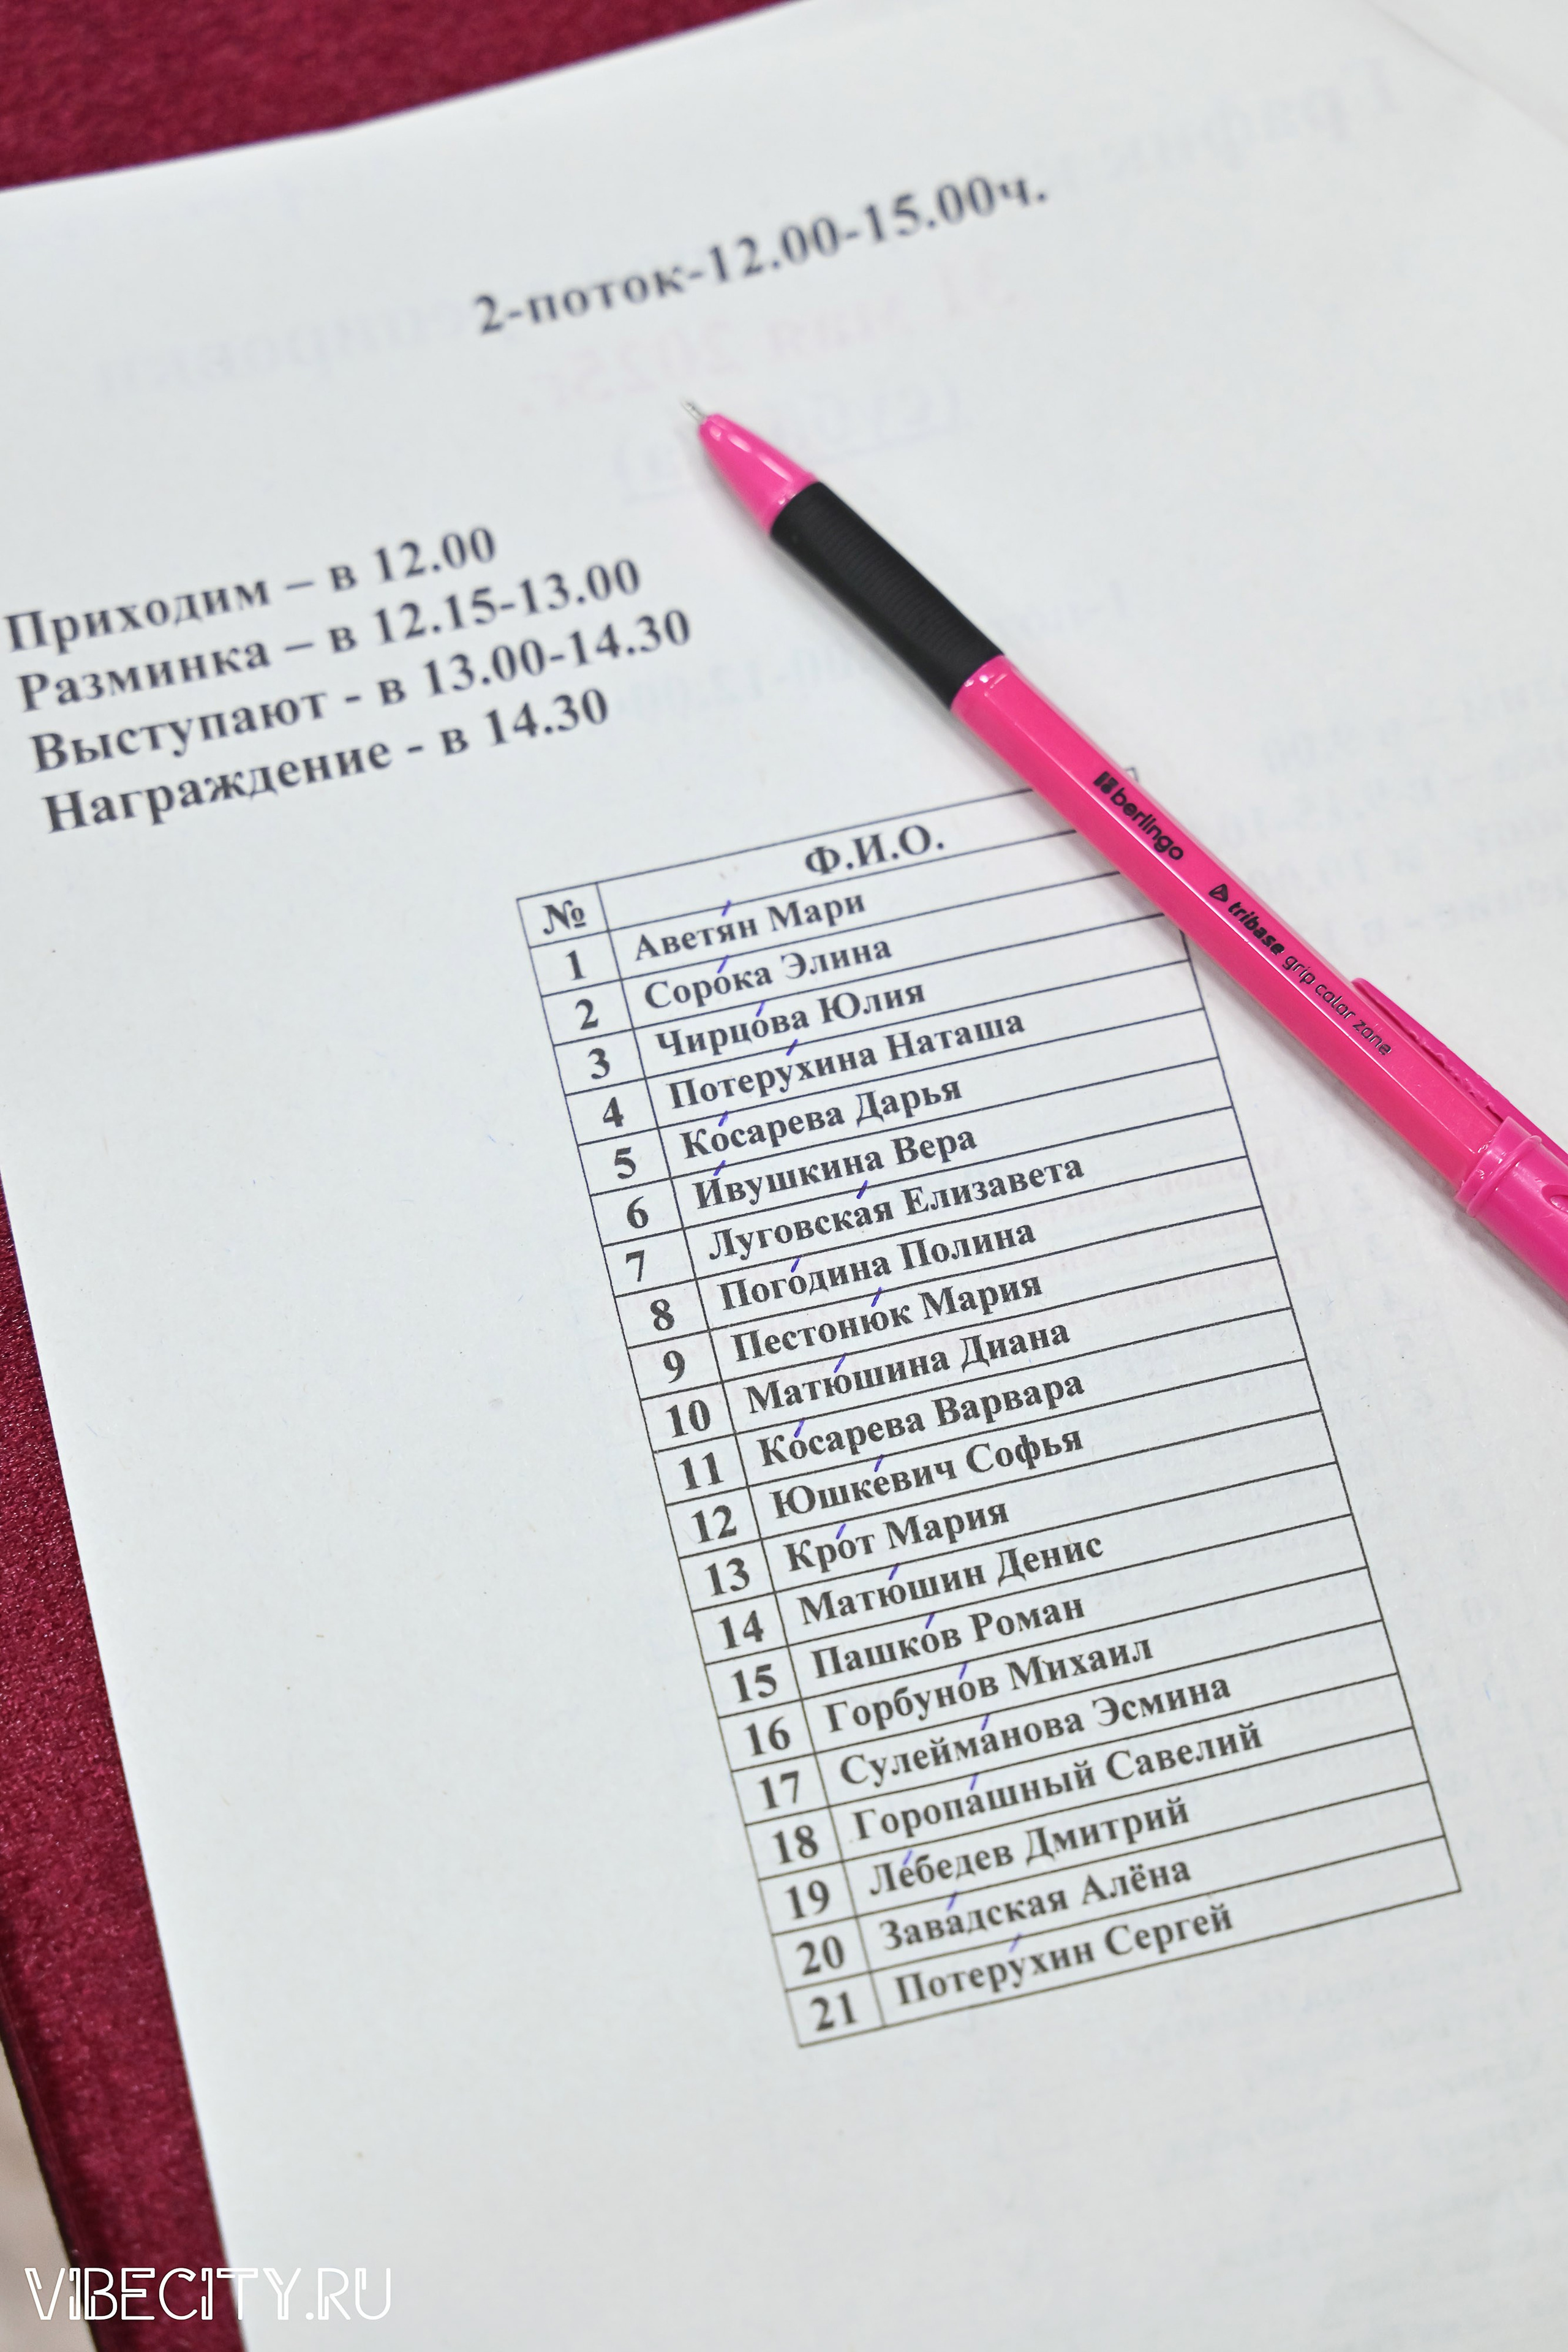 2-поток-12.00-15.00ч.
Приходим – в 12.00
Разминка – в 12.15-13.00
Выступают - в 13.00-14.30
Награждение - в 14.30
№ Ф.И.О.
1 Аветя́н Мари
2 Соро́ка Элина
3 Чирцо́ва Юлия
4 Потеру́хина Наташа
5 Ко́сарева Дарья
6 И́вушкина Вера
7 Луговска́я Елизавета
8 Пого́дина Полина
9 Пестоню́к Мария
10 Матю́шина Диана
11 Ко́сарева Варвара
12 Юшке́вич Софья
13 Кро́т Мария
14 Матю́шин Денис
15 Пашко́в Роман
16 Горбуно́в Михаил
17 Сулейма́нова Эсмина
18 Горопа́шный Савелий
19 Ле́бедев Дмитрий
20 Зава́дская Алёна
21 Потеру́хин Сергей
berlingo tribase grip color zone
VIBECITY.RU